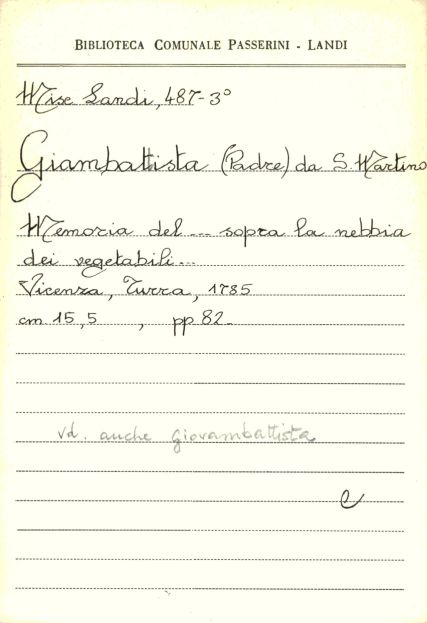 BIBLIOTECA COMUNALE PASSERINI - LANDI
Misc Landi, 487-3°
Giambattista (Padre) da S. Martino
Memoria del ... sopra la nebbia
dei vegetabili...
Vicenza, Turra, 1785
cm 15,5 , pp 82-
vd. anche Giovambattista
e